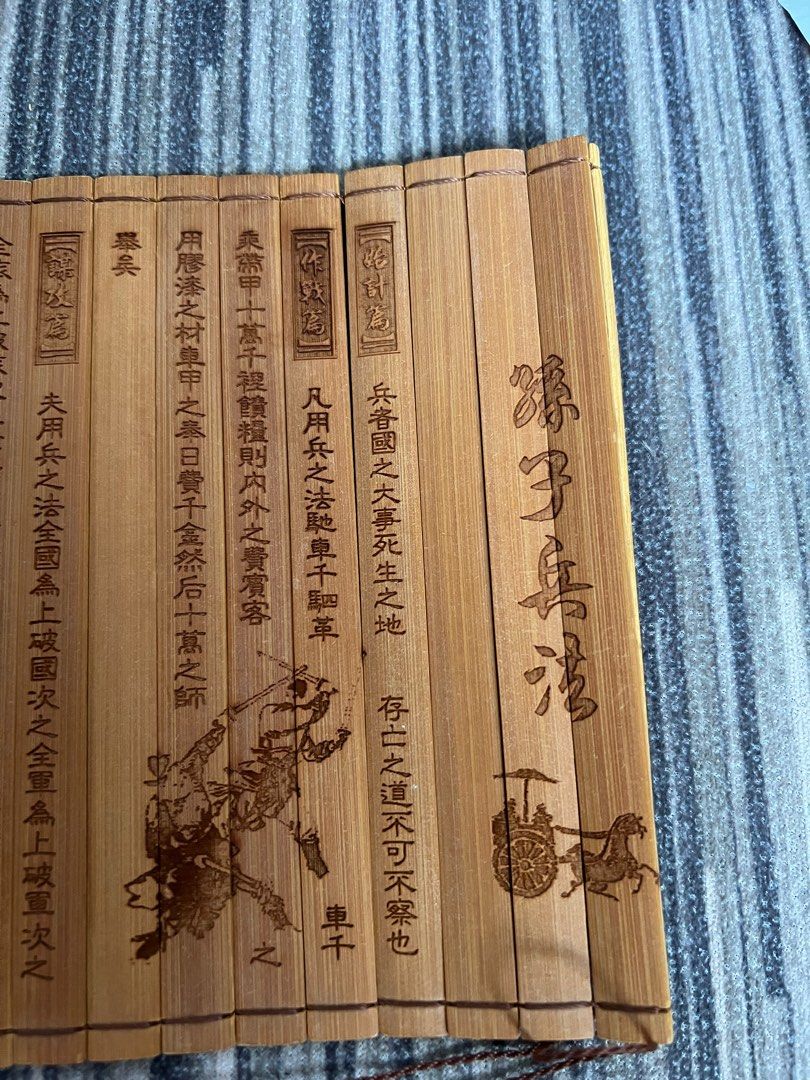 孫子兵法
【始計篇】 兵者國之大事死生之地 存亡之道不可不察也
【作戰篇】 凡用兵之法馳車千駟革 車千
乘帶甲十萬千裡饋糧則內外之費賓客 之
用膠漆之材車甲之奉日費千金然后十萬之師
舉矣
【謀攻篇】 夫用兵之法全國為上破國次之全軍為上破軍次之